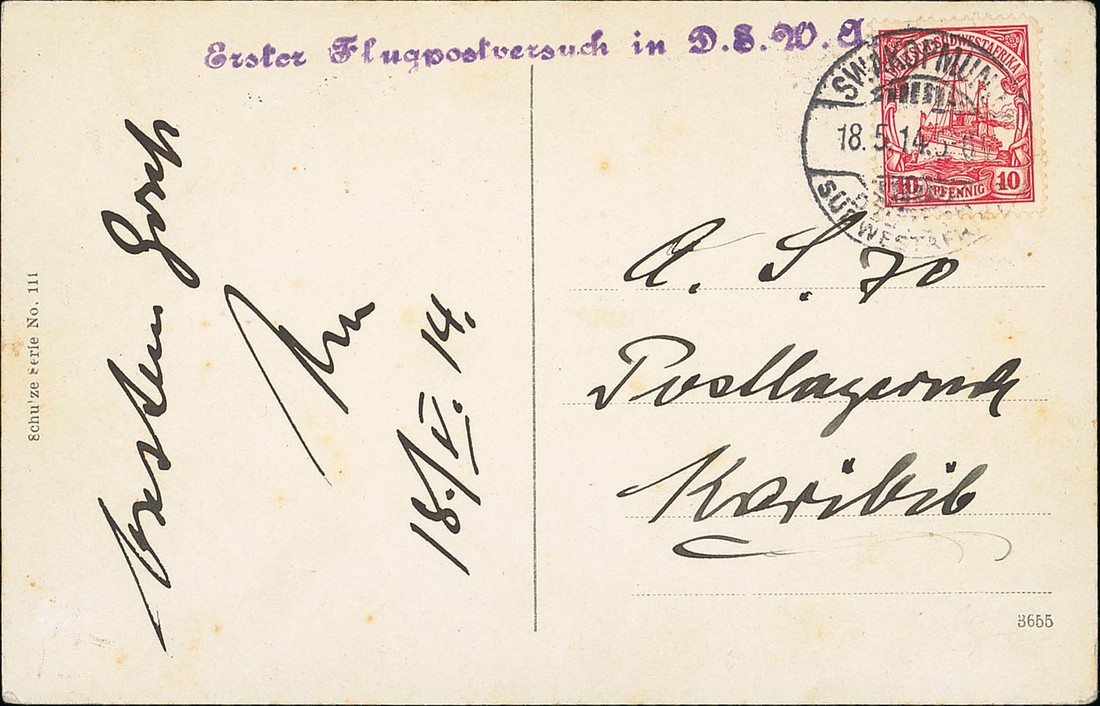 Erster Flugpostversuch in D.S.W.A.
SÜDWESTAFRIKA
10 PFENNIG 10
SWAKOPMUND
18.5.14.5-6
SÜDWESTAFRIKA
A. S. 70
Postlagernd
Karibib
Besten Gruß
18./V. 14.
Schulze Serie No. 111
3655